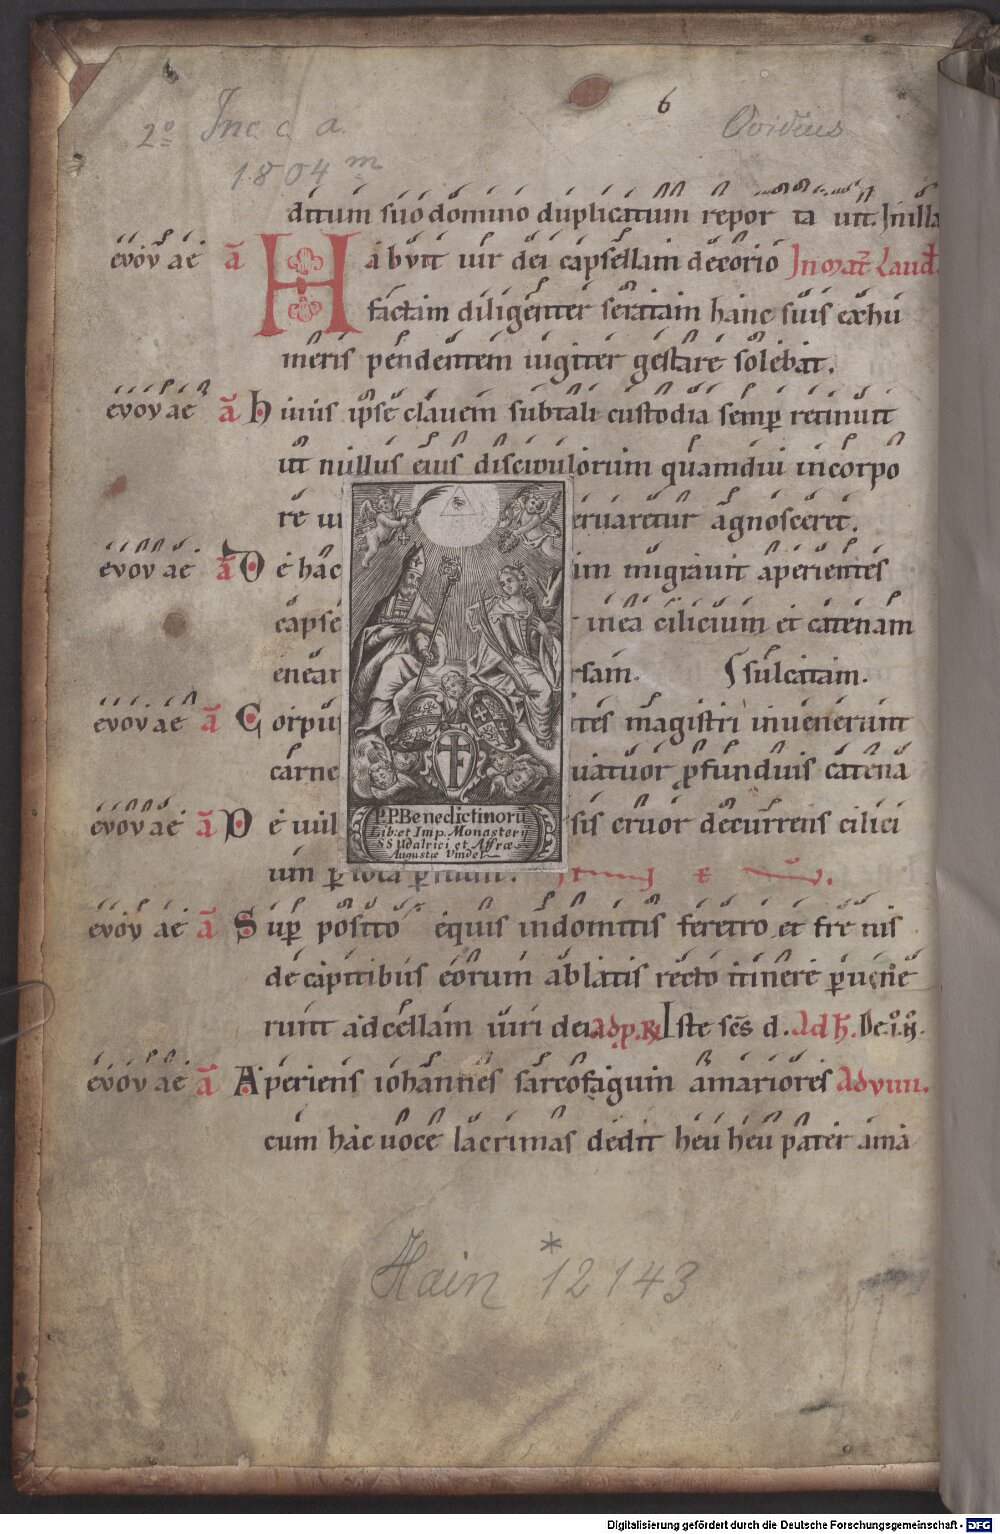 6
2º Inc. c. a. Ovidius
1804 m
ditum suo domino duplicatum repor ta uit. In illa
evov ae a Habuit uir dei capsellam de corio In mat Laud
factam diligenter seratam hanc suis ex hu
meris pendentem iugiter gestare solebat.
evov ae a Huius ipse clauem subtali custodia semp retinuit
ut nullus eius discipulorum quamdiu in corpo
re ui eruaretur agnosceret.
evov ae a De hac im migrauit aperientes
capse inea cilicium et catenam
enear rsam. sulcatam.
evov ae a Corpus tes magistri inuenerunt
carne uatuor pfundis catena
evov ae a De uul sis cruor decurrens cilici
um p tota
evov ae a Sup posito equis indomitis feretro et fre nis
de capitibus eorum ablatis recto itinere puene
runt ad cellam uiri dei adp. R Iste scs d. ad h. De. i. 
evov ae a Aperiens iohannes sarcofagum amariores ad vuu.
cum hac uoce lacrimas dedit heu heu pater ama
P.P. Benedictinorū
Lib: et Imp. Monasterij
SS Udalrici et Affræ
Augustæ Vindel
Hain *12143
Digitalisierung gefördert durch die Deutsche Forschungsgemeinschaft - DFG